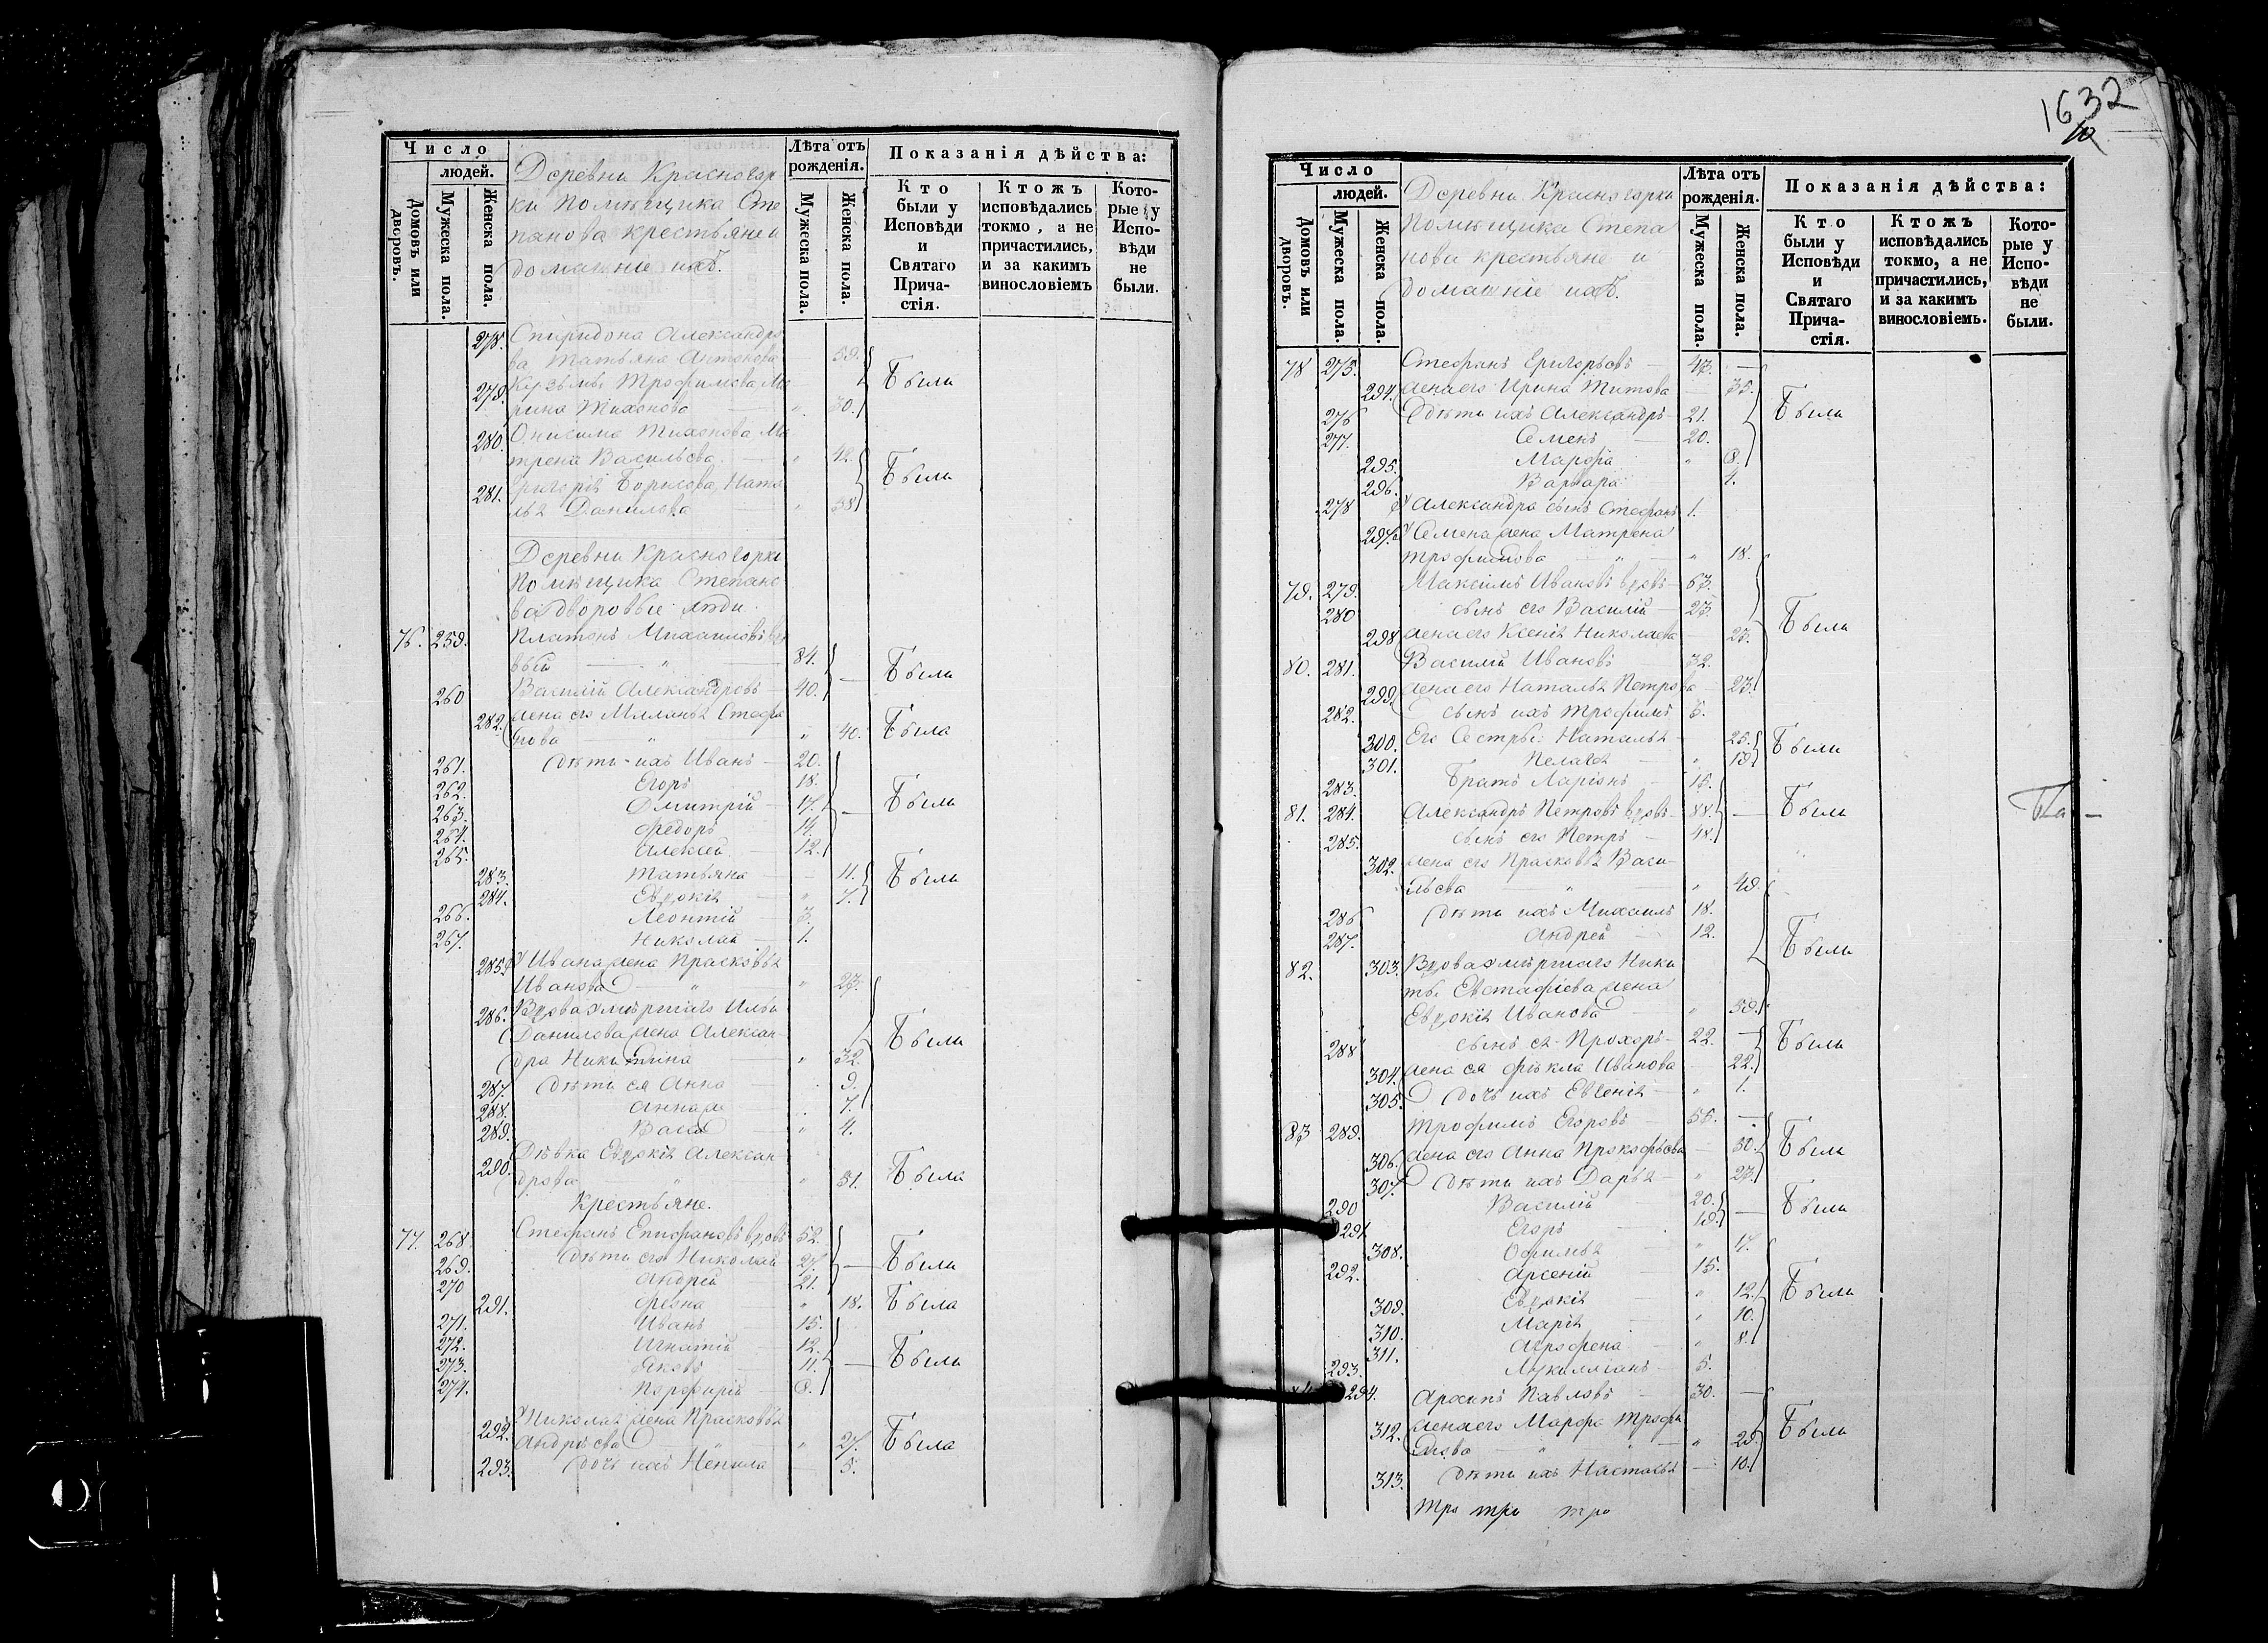 Число
людей.
Домовъ или дворовъ.
Мужеска пола.
Женска пола.
Деревни Красногор
ки Помѣщика Сте
панова крестьяне и
домашніе ихъ.
Лѣта отъ
рожденія.
Мужеска пола.
Женска пола.
Показанія дѣйства:
Кто
были у
Исповѣди
и
Святаго
Прича-
стія.
Ктожъ
исповѣдались
токмо, а не
причастились,
и за какимъ
винословіемъ
Кото-
рые у
Испо-
вѣди
не
были.
278. Спиридона Александро
ва Татьяна Антонова 59.
279. Козьмы Трофимова Ма Были
рина Тихонова „ 30.
280. Онисима Тихонова Ма
трена Васильева „ 42.
281. Григорія Борисова Ната Были
лья Данилова „ 38
Деревни Красногорки
Помѣщика Степано
ва дворовые люди.
76. 259. Платонъ Михаиловъ вдо
вый „ 84. Были
260 Василій Александровъ 40.
282. жена его Маланья Стефа
нова „ „ 40. Была
261. Дѣти ихъ Иванъ 20.
262. Егоръ 18.
263. Дмитрій 17. Были
264. Федоръ 14.
265. Алексей 12.
283. Татьяна 11. Были
284. Евдокія „ 7.
266. Леонтій 3.
267. Николай 1.
285. У Ивана жена Прасковья
Иванова „ „ 23.
286. Вдова умершаго Ильи
Данилова жена Алексан Были
дра Никитина „ 32
287. Дѣти ея Анна 9.
288. Анна „ 7.
289. Васса „ 4.
290. Дѣвка Евдокія Алексан
дрова „ „ 51. Была
Крестьяне.
77. 268 Стефанъ Епифановъ вдовъ 52.
269. Дѣти его Николай 27. Были
270 Андрей 21.
291. Феона „ 18. Была
271. Иванъ 15.
272. Игнатій 12.
273. Яковъ 11. Были
274. Порфирій 8.
292. У Николая жена Прасковья
Андрѣева „ 27. Была
293. Дочь ихъ Ненила 5.
1632
Число
людей.
Домовъ или дворовъ.
Мужеска пола.
Женска пола.
Деревни Красногорки
Помѣщика Степа
нова крестьяне и
домашніе ихъ.
Лѣта отъ
рожденія.
Мужеска пола.
Женска пола.
Показанія дѣйства:
Кто
были у
Исповѣди
и
Святаго
Прича-
стія.
Ктожъ
исповѣдались
токмо, а не
причастились,
и за какимъ
винословіемъ.
Кото-
рые у
Испо-
вѣди
не
были.
78 275. Стефанъ Григорьевъ 43.
294. жена его Ирина Титова 35.
276 Дѣти ихъ Александръ 21. Были
277. Семенъ 20.
295. Марфа „ 8.
296. Варвара 4.
278 У Александра сынъ Стефанъ 1.
297. У Семена жена Матрена
Трофимова „ „ 18.
79. 279. Максимъ Ивановъ вдовъ 63.
280 сынъ его Василій 23 Были
298 жена его Ксенія Николаева 23.
80. 281. Василій Ивановъ 32.
299. жена его Наталья Петрова 23.
282. сынъ ихъ Трофимъ 5.
300. Его Сестры Наталья 25. Были
301. Пелагея „ 19
283. Братъ Ларіонъ 15.
81. 284. Александръ Петровъ вдовъ 88. Были
285. сынъ его Петръ 48.
302. жена его Прасковья Васи-
льева „ „ 49.
286 Дѣти ихъ Михаилъ 18.
287. Андрей 12. Были
82. 303. Вдова умершаго Ники
ты Евстафіева жена
Евдокія Иванова „ 59.
288 сынъ ея Прохоръ 22. Были
304. жена ея Фекла Иванова 22.
305. Дочь ихъ Евгенія „ 1.
83 289. Трофимъ Егоровъ 55.
306. жена его Анна Прокофьева 50. Были
307. Дѣти ихъ Дарья „ 23.
290 Василій 20. Были
291 Егоръ 19.
308. Офимья „ 17.
292. Арсеній 15.
309. Евдокія „ 12. Были
310. Марія „ 10.
311. Агрофена „ 8.
293. Лукилліанъ 5.
294. Архипъ Павловъ 30.
312. жена его Марфа Трофи Были
мова „ „ 29.
313. Дѣти ихъ Настасья 10.
Тро тро тро